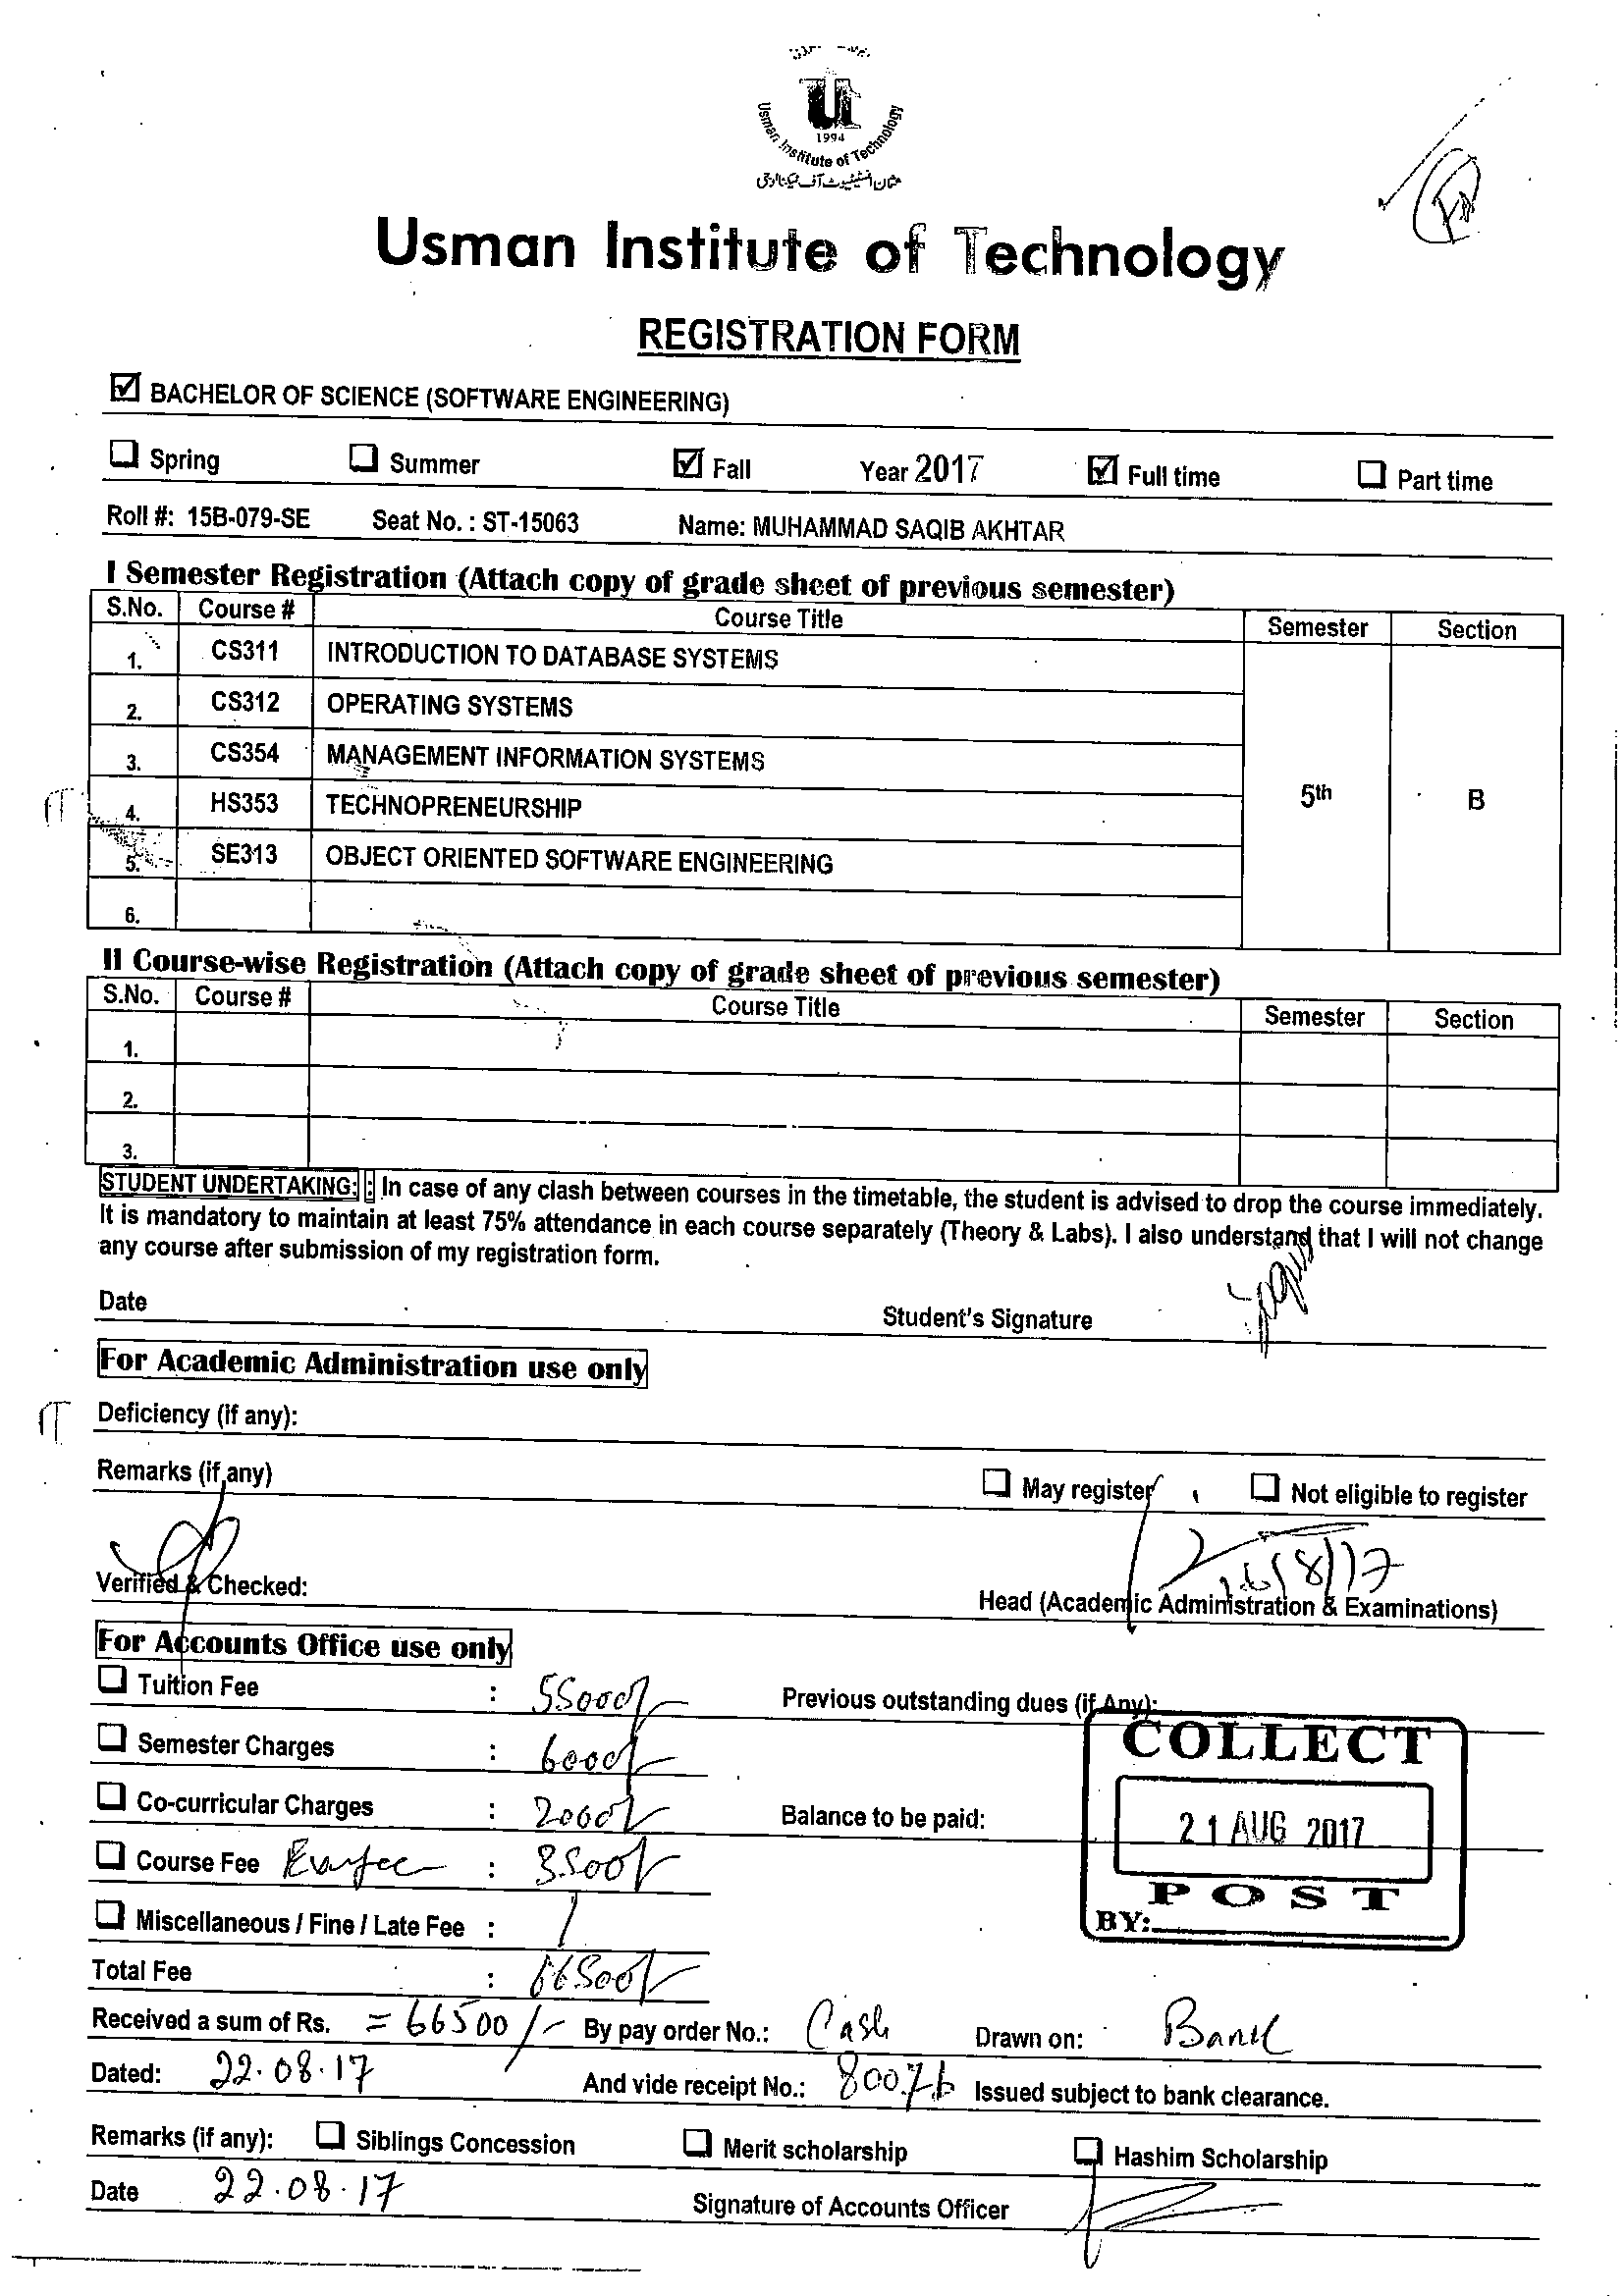 1994
Usman Institute of Technology
عثمان انسٹیٹیوٹ آف ٹیکنالوجی
Usman Institute of Technology
REGISTRATION FORM
BACHELOR OF SCIENCE (SOFTWARE ENGINEERING)
Spring Summer Fall Year 2017 Full time Part time
Roll #: 15B-079-SE Seat No. : ST-15063 Name: MUHAMMAD SAQIB AKHTAR
I Semester Registration (Attach copy of grade sheet of previous semester)
S.No. Course # Course Title Semester Section
1. CS311 INTRODUCTION TO DATABASE SYSTEMS
2. CS312 OPERATING SYSTEMS
3. CS354 MANAGEMENT INFORMATION SYSTEMS
4. HS353 TECHNOPRENEURSHIP 5th B
5. SE313 OBJECT ORIENTED SOFTWARE ENGINEERING
6.
II Course-wise Registration (Attach copy of grade sheet of previous semester)
S.No. Course # Course Title Semester Section
1.
2.
3.
STUDENT UNDERTAKING: : In case of any clash between courses in the timetable, the student is advised to drop the course immediately.
It is mandatory to maintain at least 75% attendance in each course separately (Theory & Labs). I also understand that I will not change
any course after submission of my registration form.
Date Student's Signature
For Academic Administration use only
Deficiency (if any):
Remarks (if any) May register Not eligible to register
Verified & Checked: Head (Academic Administration & Examinations)
For Accounts Office use only
Tuition Fee : 55000/- Previous outstanding dues (if Any):
Semester Charges : 6000/-
Co-curricular Charges : 2000/- Balance to be paid:
Course Fee : 3500/-
Miscellaneous / Fine / Late Fee :
COLLECT
21 AUG 2017
POST
BY:
Total Fee : 66500/-
Received a sum of Rs. = 66500/- By pay order No.: Cash Drawn on: Bank
Dated: 22.08.17 And vide receipt No.: 80076 Issued subject to bank clearance.
Remarks (if any): Siblings Concession Merit scholarship Hashim Scholarship
Date 22.08.17 Signature of Accounts Officer